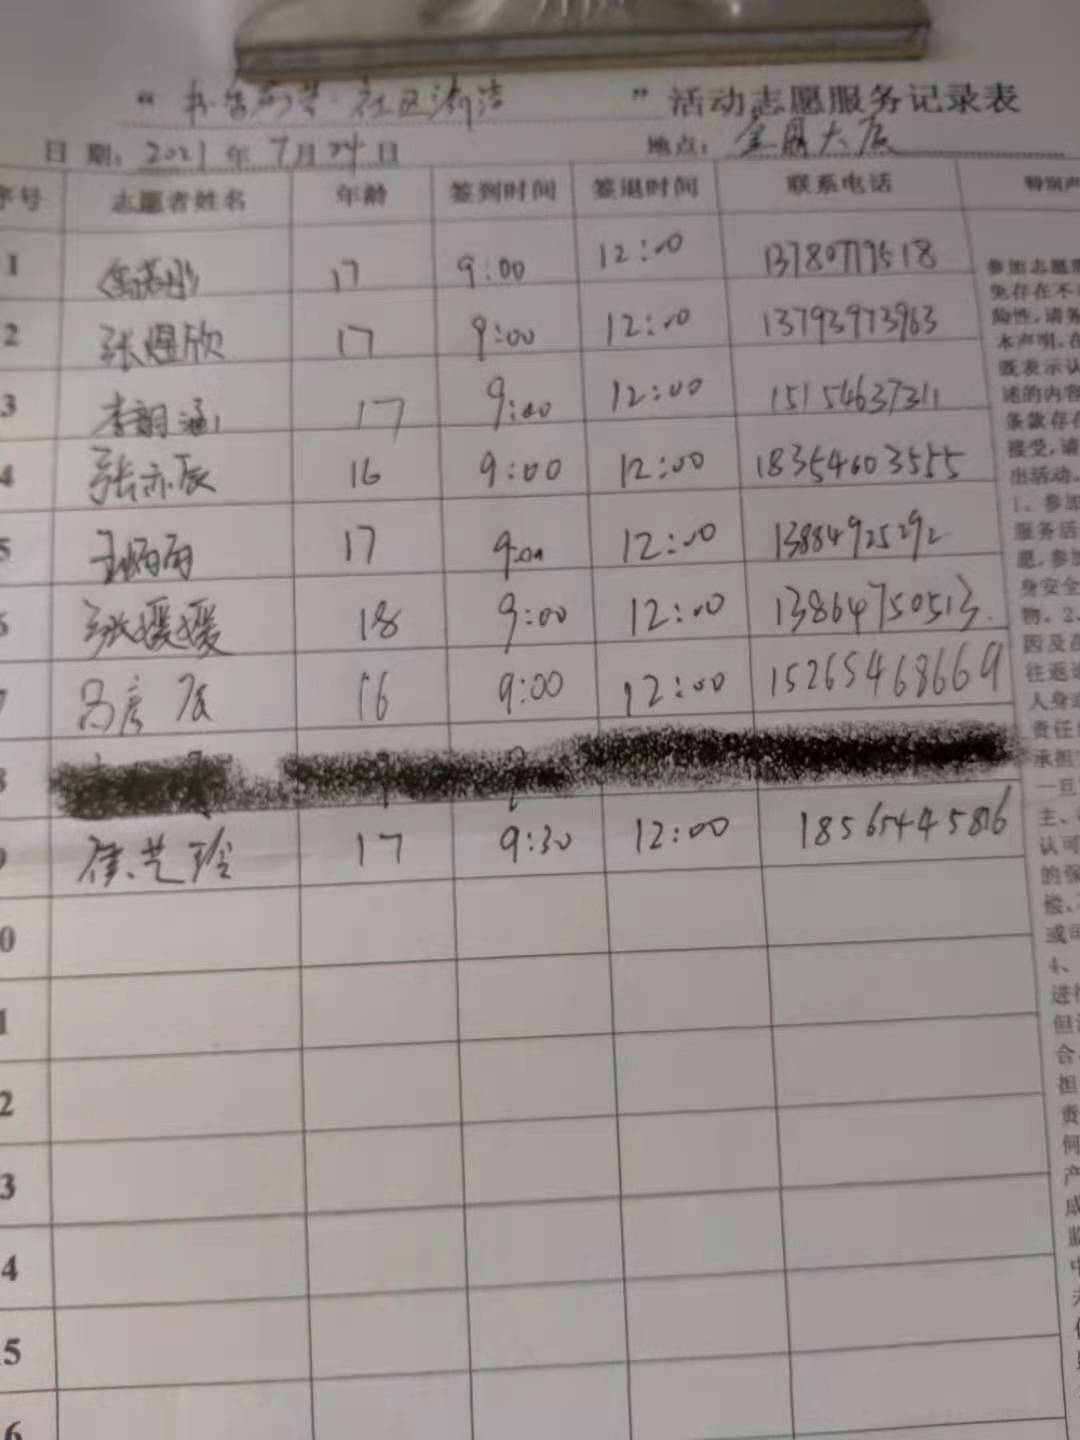 “ 书香 社区清洁 ” 活动志愿服务记录表
日 期: 2021 年 7月24日 地点: 大厦
序号 志愿者姓名 年龄 签到时间 签退时间 联系电话 特别声
1 17 9:00 12:00
2 张煜欣 17 9:00 12:00 13793973963
3 李韵涵 17 9:00 12:00 15154637311
4 张亦辰 16 9:00 12:00 18354603555
5 17 9:00 12:00 13884925292
6 张媛媛 18 9:00 12:00 13864750513.
7 吕彦辰 16 9:00 12:00 15265468669
8
9 徐艺玲 17 9:30 12:00
0
1
2
3
4
5
6
参加志愿服
免存在不
险性,请务
本声明,在
既表示认
述的内容
条款存在
接受,请
出活动。
1、参加
服务活
愿,参加
身安全
物。2、
因及在
往返途
人身
责任
承担
一旦
主、
认可
的保
偿、
或
4、
进行
但
合
担
责
何
产
成
监
中